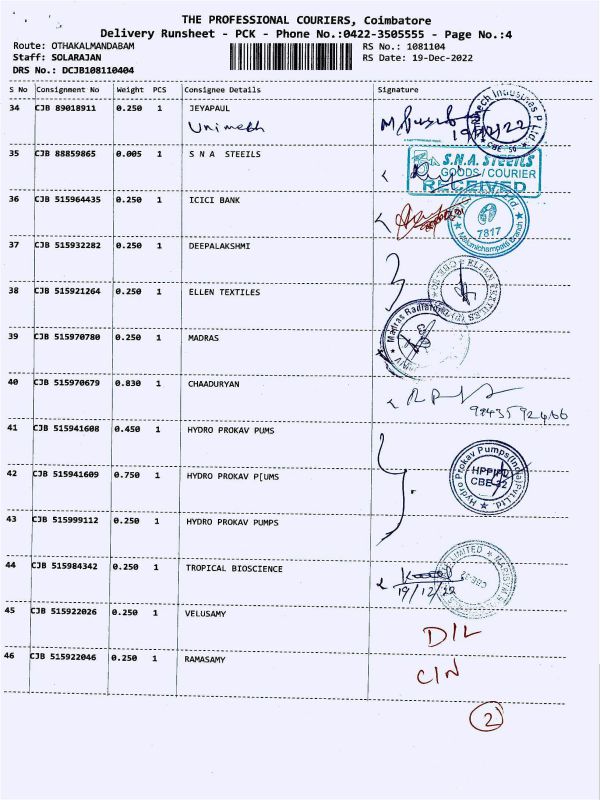 THE PROFESSIONAL COURIERS, Coimbatore
Delivery Runsheet - PCK - Phone No.:0422-3505555 - Page No.:4
Route: OTHAKALMANDABAM RS No.: 1081104
Staff: SOLARAJAN RS Date: 19-Dec-2022
DRS No.: DCJB108110404
S No Consignment No Weight PCS Consignee Details Signature
34 CJB 89018911 0.250 1 JEYAPAUL
Unimech
19/12/22
CBE-50
35 CJB 88859865 0.005 1 S N A STEEILS
S.N.A. STEEILS
GOODS/COURIER
RECEIVED
36 CJB 515964435 0.250 1 ICICI BANK
7817
37 CJB 515932282 0.250 1 DEEPALAKSHMI
38 CJB 515921264 0.250 1 ELLEN TEXTILES
ELLEN TEXTILES
39 CJB 515970780 0.250 1 MADRAS
Madras
40 CJB 515970679 0.830 1 CHAADURYAN
41 CJB 515941608 0.450 1 HYDRO PROKAV PUMS
42 CJB 515941609 0.750 1 HYDRO PROKAV P[UMS
Hydro Prokav Pumps(India)Pvt.Ltd.
HPPIPL
CBE-32
43 CJB 515999112 0.250 1 HYDRO PROKAV PUMPS
44 CJB 515984342 0.250 1 TROPICAL BIOSCIENCE
LIMITED
19/12/22
45 CJB 515922026 0.250 1 VELUSAMY
D/L
46 CJB 515922046 0.250 1 RAMASAMY
C/N
2